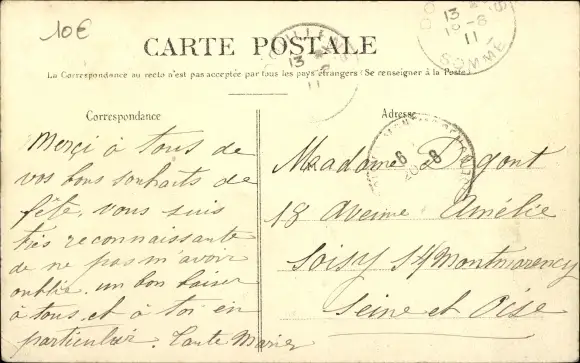 10€
CARTE POSTALE
La Correspondance au recto n'est pas acceptée par tous les pays étrangers (Se renseigner à la Poste)
Correspondance
Merçi à tous de
vos bons souhaits de
fête, vous suis
très reconnaissante
de ne pas m'avoir
oublié. un bon baiser
à tous, et à toi en
particulier. Tante Marie
Adresse
Maadame Dugont
18 Avenue Amélie
Soisy s/ Montmorency
Seine et Oise
13
11
SOMME
13
11
6
20
8